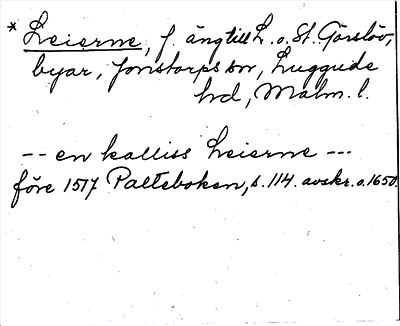 * Leierne, f. äng till L. o. St. Görslöv,
byar, Jonstorps sn, Luggude
hrd, Malm. l.
-- en kalliss Leierne ---
före 1517 Palteboken, s. 114. avskr. o. 1650.